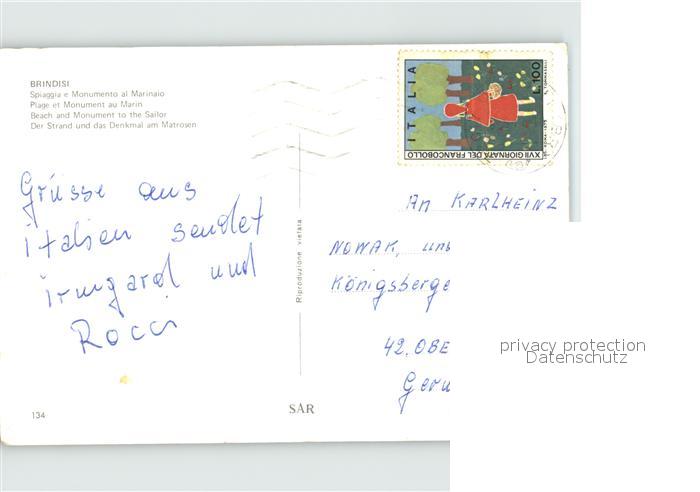 BRINDISI
Spiaggia e Monumento al Marinaio
Plage et Monument au Marin
Beach and Monument to the Sailor
Der Strand und das Denkmal am Matrosen
ITALIA
L.100
XVII GIORNATA DEL FRANCOBOLLO
Grüsse aus
italien sendet
irmgard und
Rocci
Riproduzione vietata
An KARLHEINZ
NOWAK, un
Königsberge
42. OBE
Ger
privacy protection
Datenschutz
134
SAR